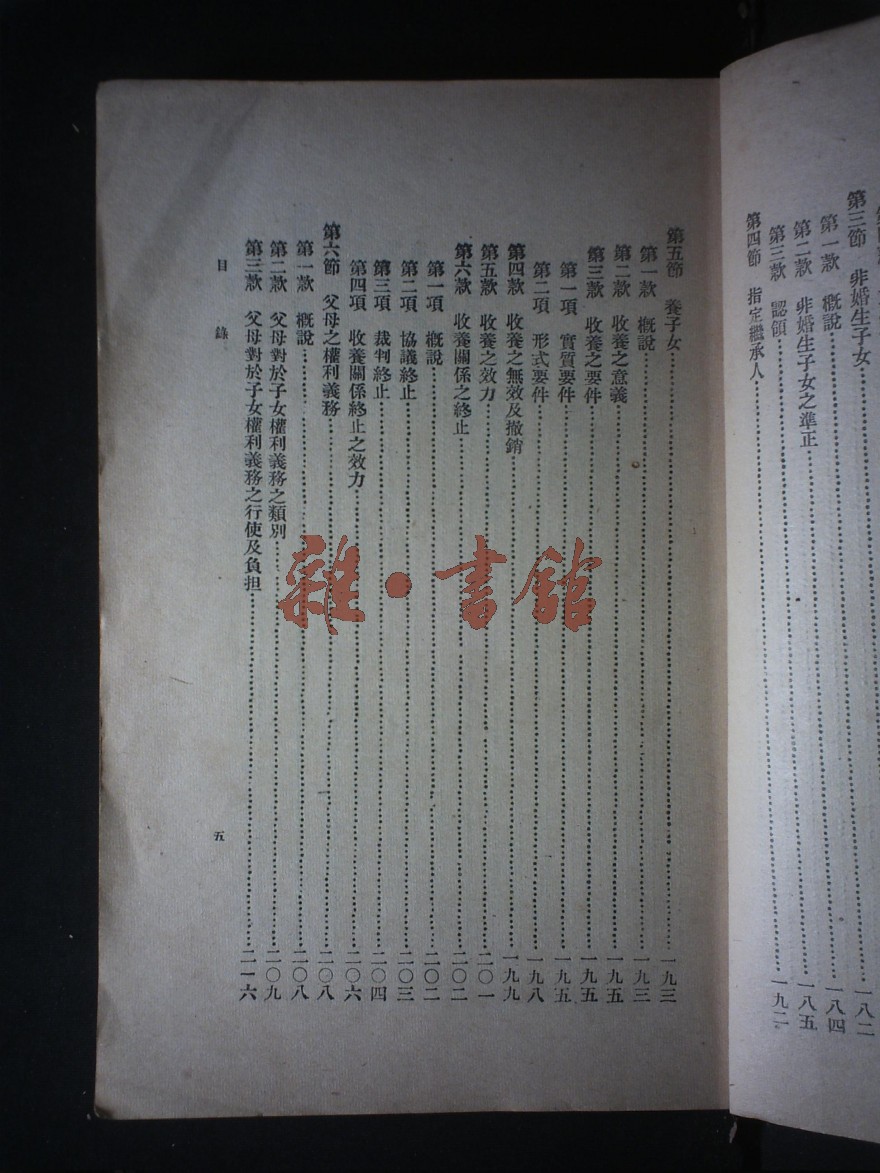 第三節　非婚生子女……一八二
第一款　概說……一八四
第二款　非婚生子女之準正……一八五
第三款　認領
第四節　指定繼承人……一九二
第五節　養子女……一九三
第一款　概說……一九三
第二款　收養之意義……一九五
第三款　收養之要件……一九五
第一項　實質要件……一九五
第二項　形式要件……一九八
第四款　收養之無效及撤銷……一九九
第五款　收養之效力……二〇一
第六款　收養關係之終止……二〇二
第一項　概說……二〇二
第二項　協議終止……二〇三
第三項　裁判終止……二〇四
第四項　收養關係終止之效力……二〇六
第六節　父母之權利義務……二〇八
第一款　概說……二〇八
第二款　父母對於子女權利義務之類別……二〇九
第三款　父母對於子女權利義務之行使及負担……二一六
目錄　五
雜·書館